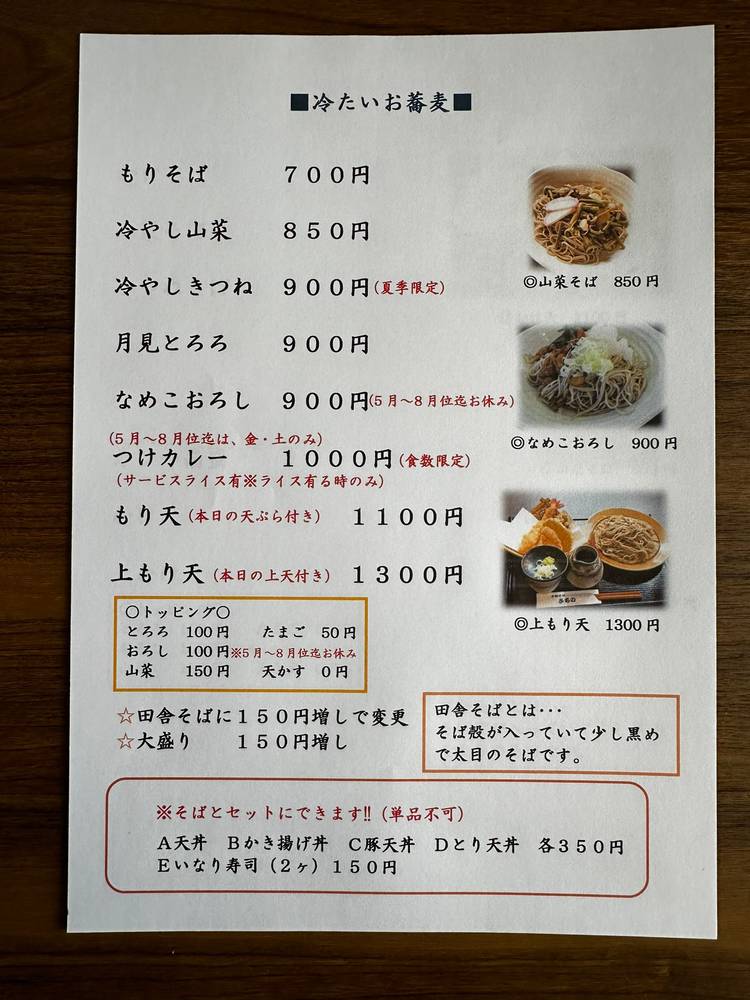 ■冷たいお蕎麦■
もりそば 700円
冷やし山菜 850円
冷やしきつね 900円(夏季限定)
月見とろろ 900円
なめこおろし 900円(5月～8月位迄お休み)
(5月～8月位迄は、金・土のみ)
つけカレー 1000円(食数限定)
(サービスライス有※ライス有る時のみ)
もり天(本日の天ぷら付き) 1100円
上もり天(本日の上天付き) 1300円
◎山菜そば 850円
◎なめこおろし 900円
◎上もり天 1300円
〇トッピング〇
とろろ 100円 たまご 50円
おろし 100円※5月～8月位迄お休み
山菜 150円 天かす 0円
☆田舎そばに150円増しで変更
☆大盛り 150円増し
田舎そばとは･･･
そば殻が入っていて少し黒め
で太目のそばです。
※そばとセットにできます!!(単品不可)
A天丼 Bかき揚げ丼 C豚天丼 Dとり天丼 各350円
Eいなり寿司(2ヶ)150円